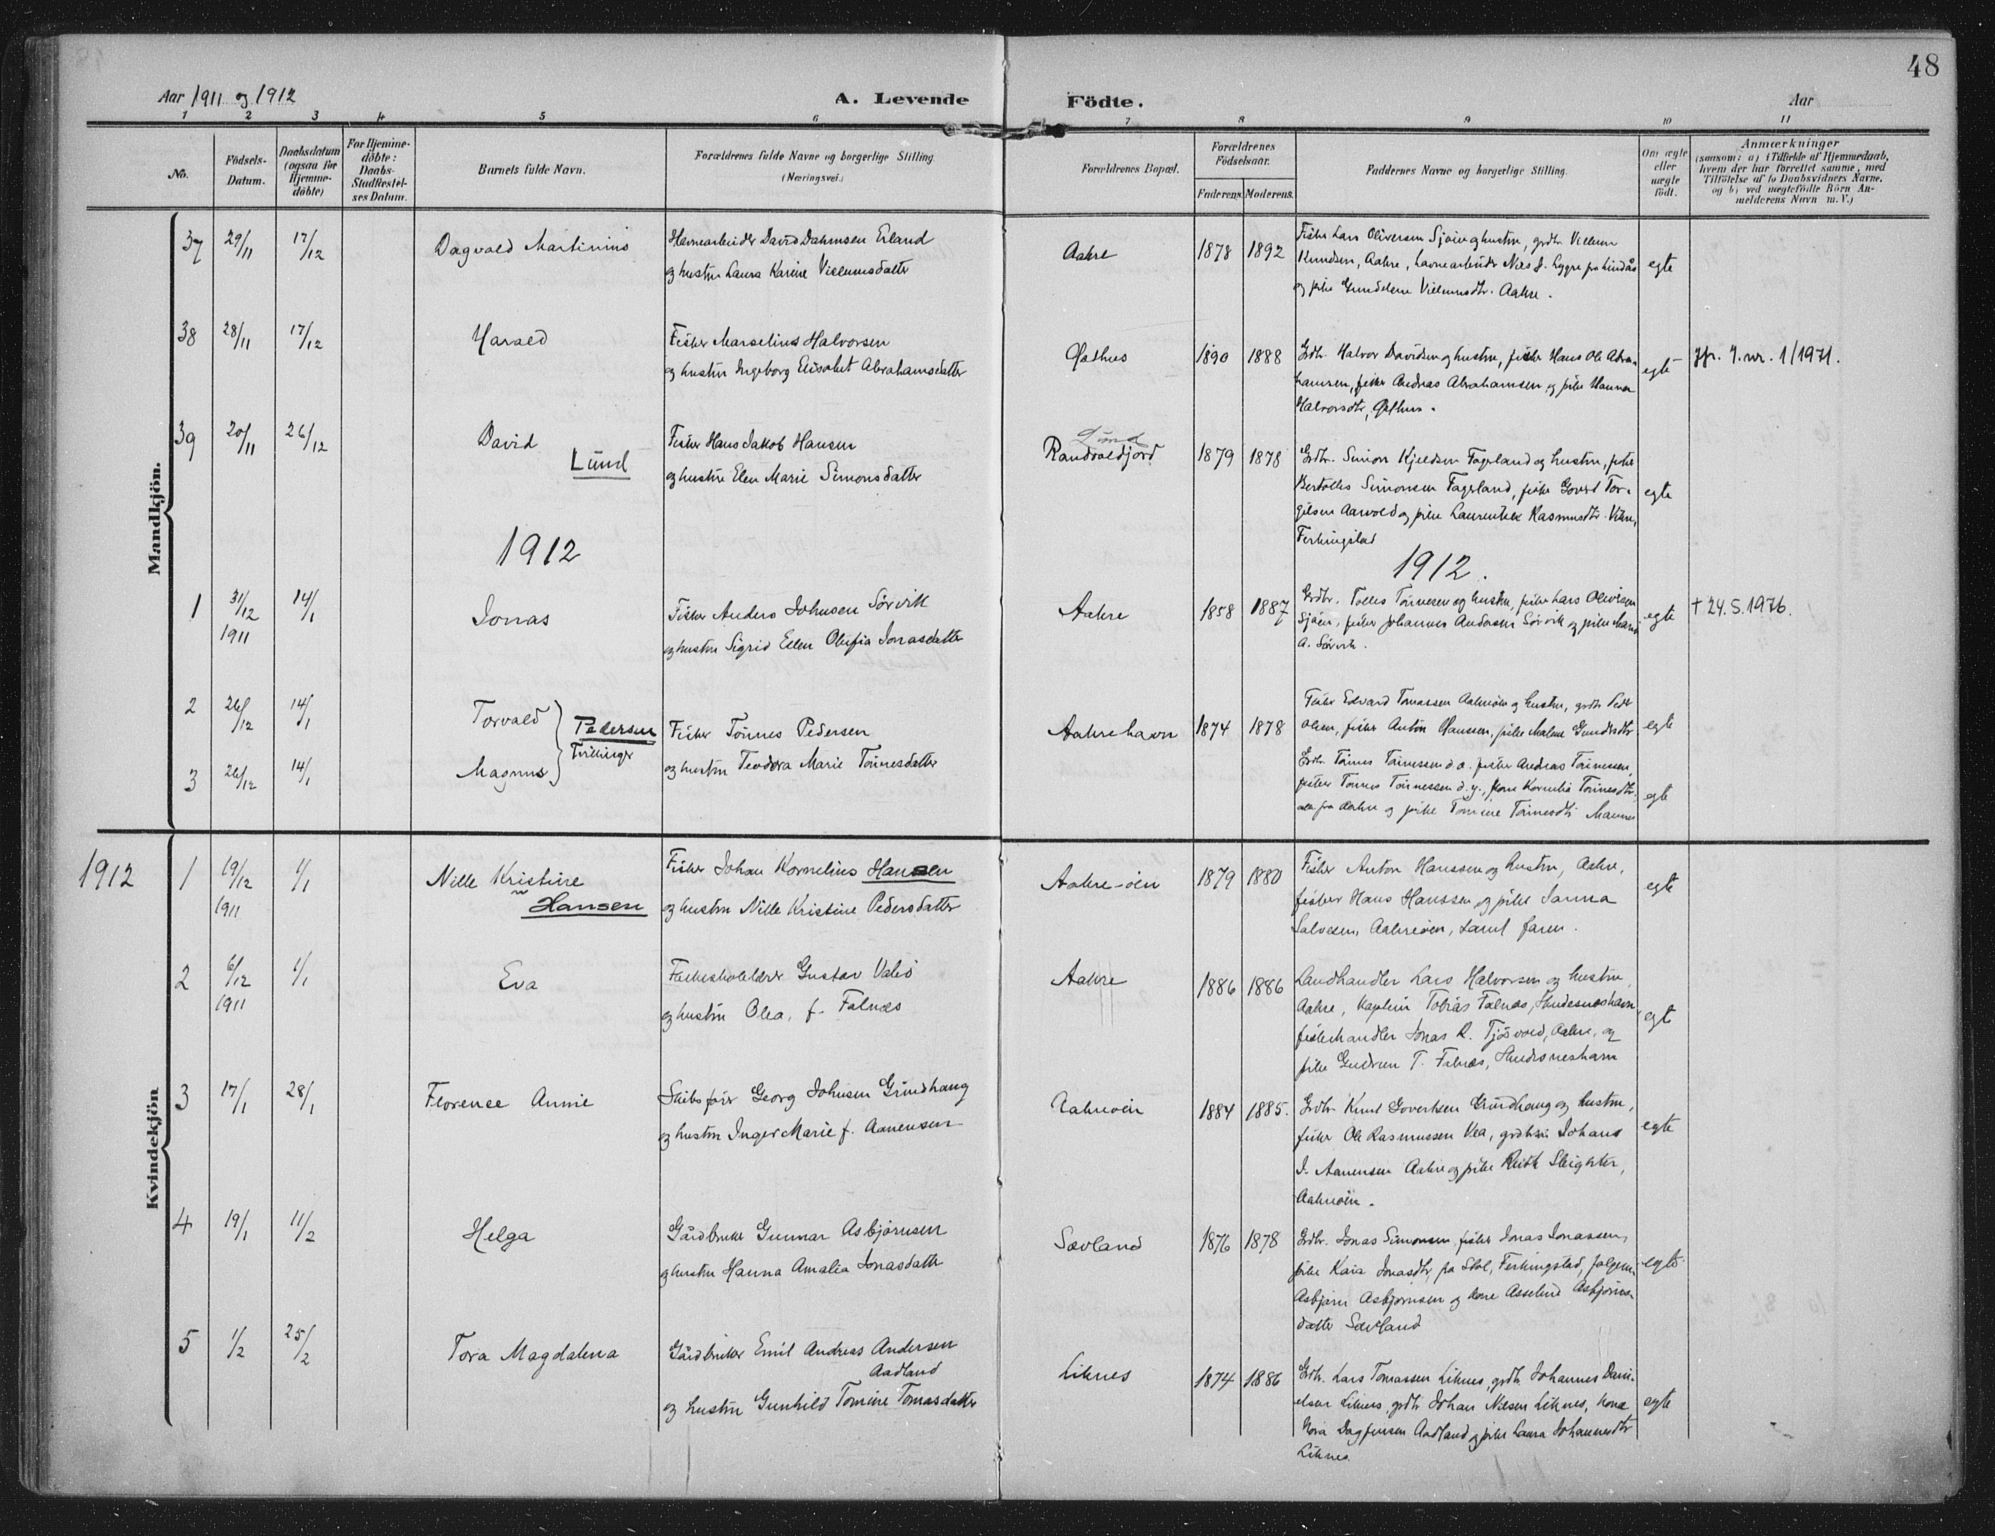 48
Aar 1911 og 1912
A. Levende Födte.
Aar
1 2 3 4 5 6 7 8 9 10 11
No.
Födsels-Datum.
Daabsdatum (ogsaa for Hjemmedöbte)
For Hjemmedöbte: Daabs-Stadfæstelses Datum.
Barnets fulde Navn.
Forældrenes fulde Navne og borgerlige Stilling
(Næringsvei.)
Forældrenes Bopæl.
Forældrenes Födselsaar.
Faderens. Moderens.
Faddernes Navne og borgerlige Stilling.
Om ægte eller uægte födt.
Anmærkninger
(saasom: a) i Tilfælde af Hjemmedaab,
hvem der har forrettet samme, med
Tilföielse af to Daabsvidners Navne,
og b) ved uægtefödte Börn An-
melderens Navn m. V.)
Mandkjön.
37 29/11 17/12 Dagvald Martinius
Havnearbeider David Dahmsen Erland
og hustru Laura Karine Villumsdatter
Aakre 1878 1892
Fisker Lars Oliversen Sjøen og hustru, grdbr. Villum
Knudsen, Aakre, havnearbeider Nils J. Lygre fra Lindås
og pike Gundelene Villumsdtr. Aakre.
egte
38 28/11 17/12 Harald
Fisker Marselius Halvorsen
og hustru Ingeborg Elisabet Abrahamsdatter
1890 1888
Grdbr. Halvor Davidsen og hustru, fisker Hans Ole Abra-
hamsen, fisker Andreas Abrahamsen og pike Hanna
Halvorsdtr,
egte
jfr. j. nr. 1/1971.
39 20/11 26/12 David
Lund
Fisker Hans Jakob Hansen
og hustru Elen Marie Simonsdatter
Lund
1879 1878
Grdbr. Simon Kjeldsen Fagerland og hustru, fisker
Bertolles Simonsen Fagerland, fisker Govert Tor-
gilsen Aarvold og pike Laurentse Rasmusdtr.
Ferkingstad
egte
1912 1912.
1 31/12 1911 14/1 Jonas
Fisker Anders Johnsen Sørvik
og hustru Sigrid Ellen Olufia Jonasdatter
Aakre 1858 1887
Grdbr. Tolles Tønnesen og hustru, fisker Lars Oliversen
Sjøen, fisker Johannes Andersen Sørvik og pike
A. Sørvik.
egte
† 24.5.1976.
2 26/12 14/1 Torvald
Pedersen
Tvillinger
3 26/12 14/1 Magnus
Fisker Tønnes Pedersen
og hustru Teodora Marie Tønnesdatter
Aakrehavn 1874 1878
Fisker Edvard Tomassen Aakreøen og hustru, grdbr Peder
Olsen, fisker Anton Hanssen, pike Malene Gundersdtr
egte
Grdbr. Tønnes Tønnessen d. æ. fisker Andreas Tønnesen,
fisker Tønnes Tønnessen d. y., kone Kornelia Tønnesdtr
alle fra Aakre og pike Tomine Tønnesdtr
egte
Kvindekjön
1912
1 19/12 1911 1/1 Nille Kristine
Hansen
Fisker Johan Kornelius Hansen
og hustru Nille Kristine Pedersdatter
Aakre-øen 1879 1880
Fisker Anton Hanssen og hustru, Aakre,
fisker Hans Hanssen og pike Janna
Salvesen, Aakreøen, samt faren.
egte
2 6/12 1911 1/1 Eva
Gustav Valø
og hustru Olea, f. Falnæs
Aakre 1886 1886
Landhandler Lars Halvorsen og hustru
Aakre, Kaptein Tobias Falnæs, Skudesneshavn,
fiskehandler Jonas R. Tjøsvold, Aakre, og
pike Gudrun T. Falnæs, Skudesneshavn
egte
3 17/1 28/1 Florence Annie
Skibsfører Georg Johnsen Grindhaug
og hustru Inger Marie f. Aanensen
Aakreøen 1884 1885.
Grdbr Knut Govertsen Grindhaug og hustru,
fisker Ole Rasmussen Vea, Johans
J. Aanensen Aakre og pike
Aakreøen.
egte
4 19/1 11/2 Helga
Gårdbruker Gunnar Asbjørnsen
og hustru Hanna Amalia Jonasdatter
Sævland 1876 1878
Grdbr. Jonas Simonsen, fisker Jonas Jonassen,
pike Kaia Jonasdtr. fra Stol, Ferkingstad,
Asbjørn Asbjørnsen og kone Asseline Asbjørns-
datter Sævland
egte
5 1/2 25/2 Tora Magdalena
Gårdbruker Emil Andreas Andersen
Aadland
og hustru Gunhild Tomine Tomasdatter
Liknes 1874 1886
Grdbr. Lars Tomassen Liknes, grdbr. Johannes Dani-
elsen Liknes, grdbr Johan Nilsen Liknes, kone
Nora Dagfinsen Aadland og pike Laura Johannesdtr
Liknes
egte